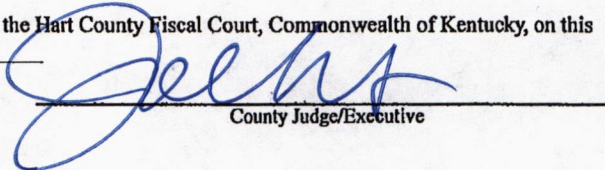 the Hart County Fiscal Court, Commonwealth of Kentucky, on this
County Judge/Executive